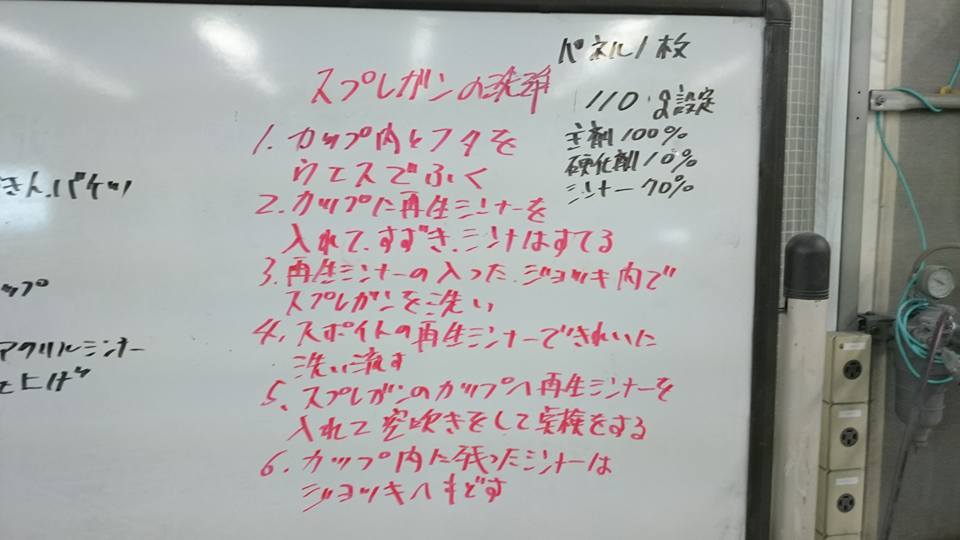 パネル1枚
110g設定
主剤100%
硬化剤10%
シンナー70%
スプレガンの洗浄
1.カップ内とフタを
ウエスでふく
2.カップに再生シンナーを
入れて、すすぎ、シンナはすてる
3.再生シンナーの入った、ジョッキ内で
スプレガンを洗い
4.スポイトの再生シンナーできれいに
洗い流す
5.スプレガンのカップへ再生シンナーを
入れて空吹きをして実検をする
6.カップ内に残ったシンナーは
ジョッキへもどす
きん.バケツ
ップ
アクリルシンナー
仕上げ